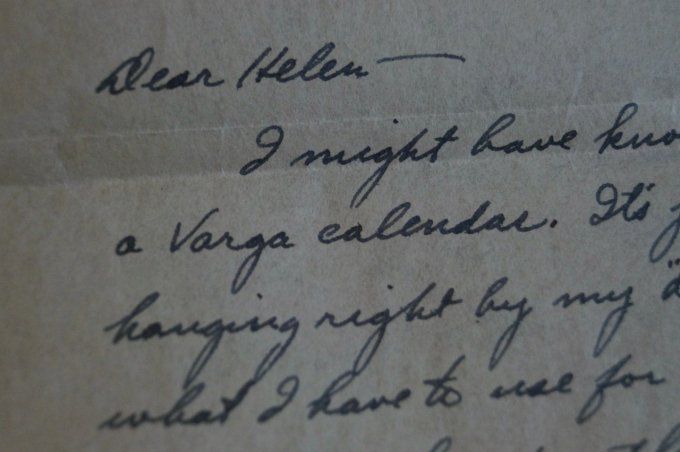 Dear Helen —
I might have kno
a Varga calendar. It's j
hanging right by my "d
what I have to use for